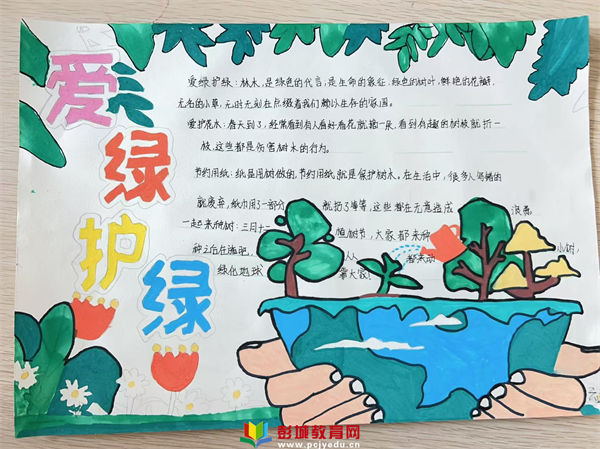 爱绿护绿
爱绿护绿：林木，是绿色的代言，是生命的象征，绿色的树叶，鲜艳的花瓣，
无名的小草，无时无刻在点缀着我们赖以生存的家园。
爱护花木：春天到了，经常看到有人看好看花就摘一朵，看到有趣的树枝就折一
枝，这些都是伤害树木的行为。
节约用纸：纸是用树做的，节约用纸就是保护树木。在生活中，很多人写错的
就废弃，纸巾用了一部分 就扔了等等，这些都在无意造成 浪费
一起来种树：三月十二 植树节，大家都来种 小树，
种 人人 都来动
绿化地球 靠大家！
彭城教育网
www.pcjyedu.cn